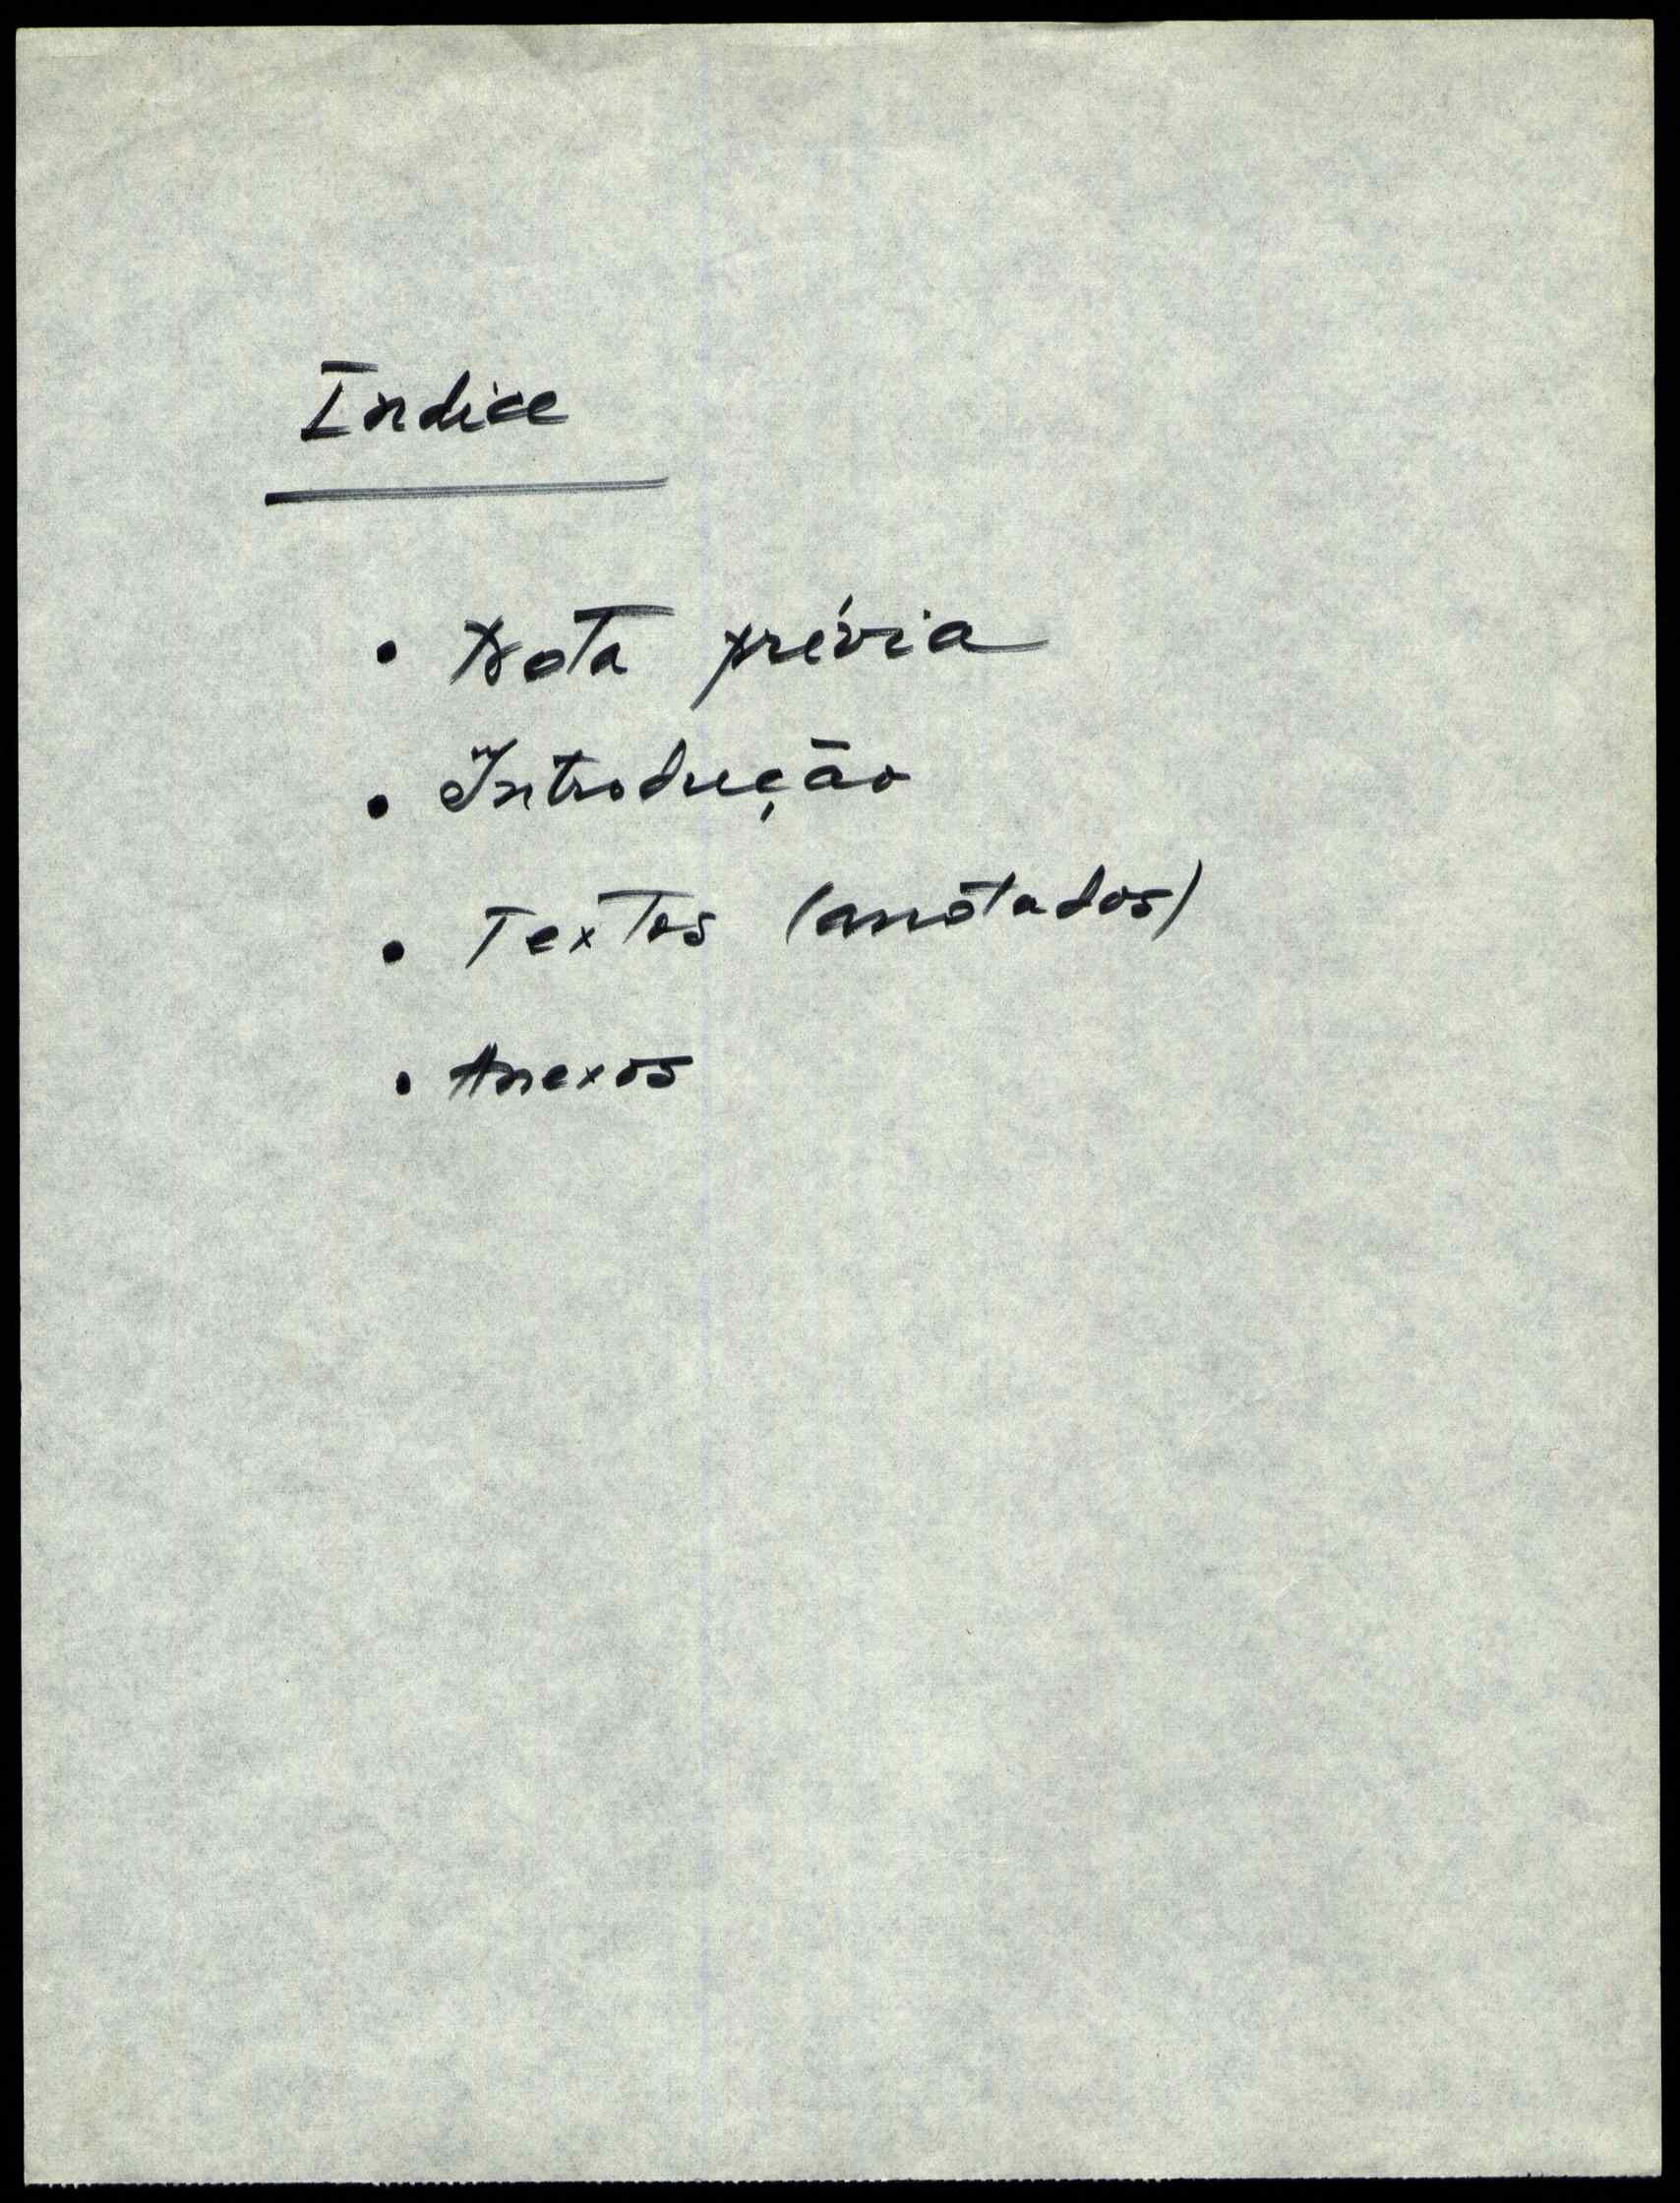 Indice
• Nota prévia
• Introdução
• Textos (anotados)
• Anexos